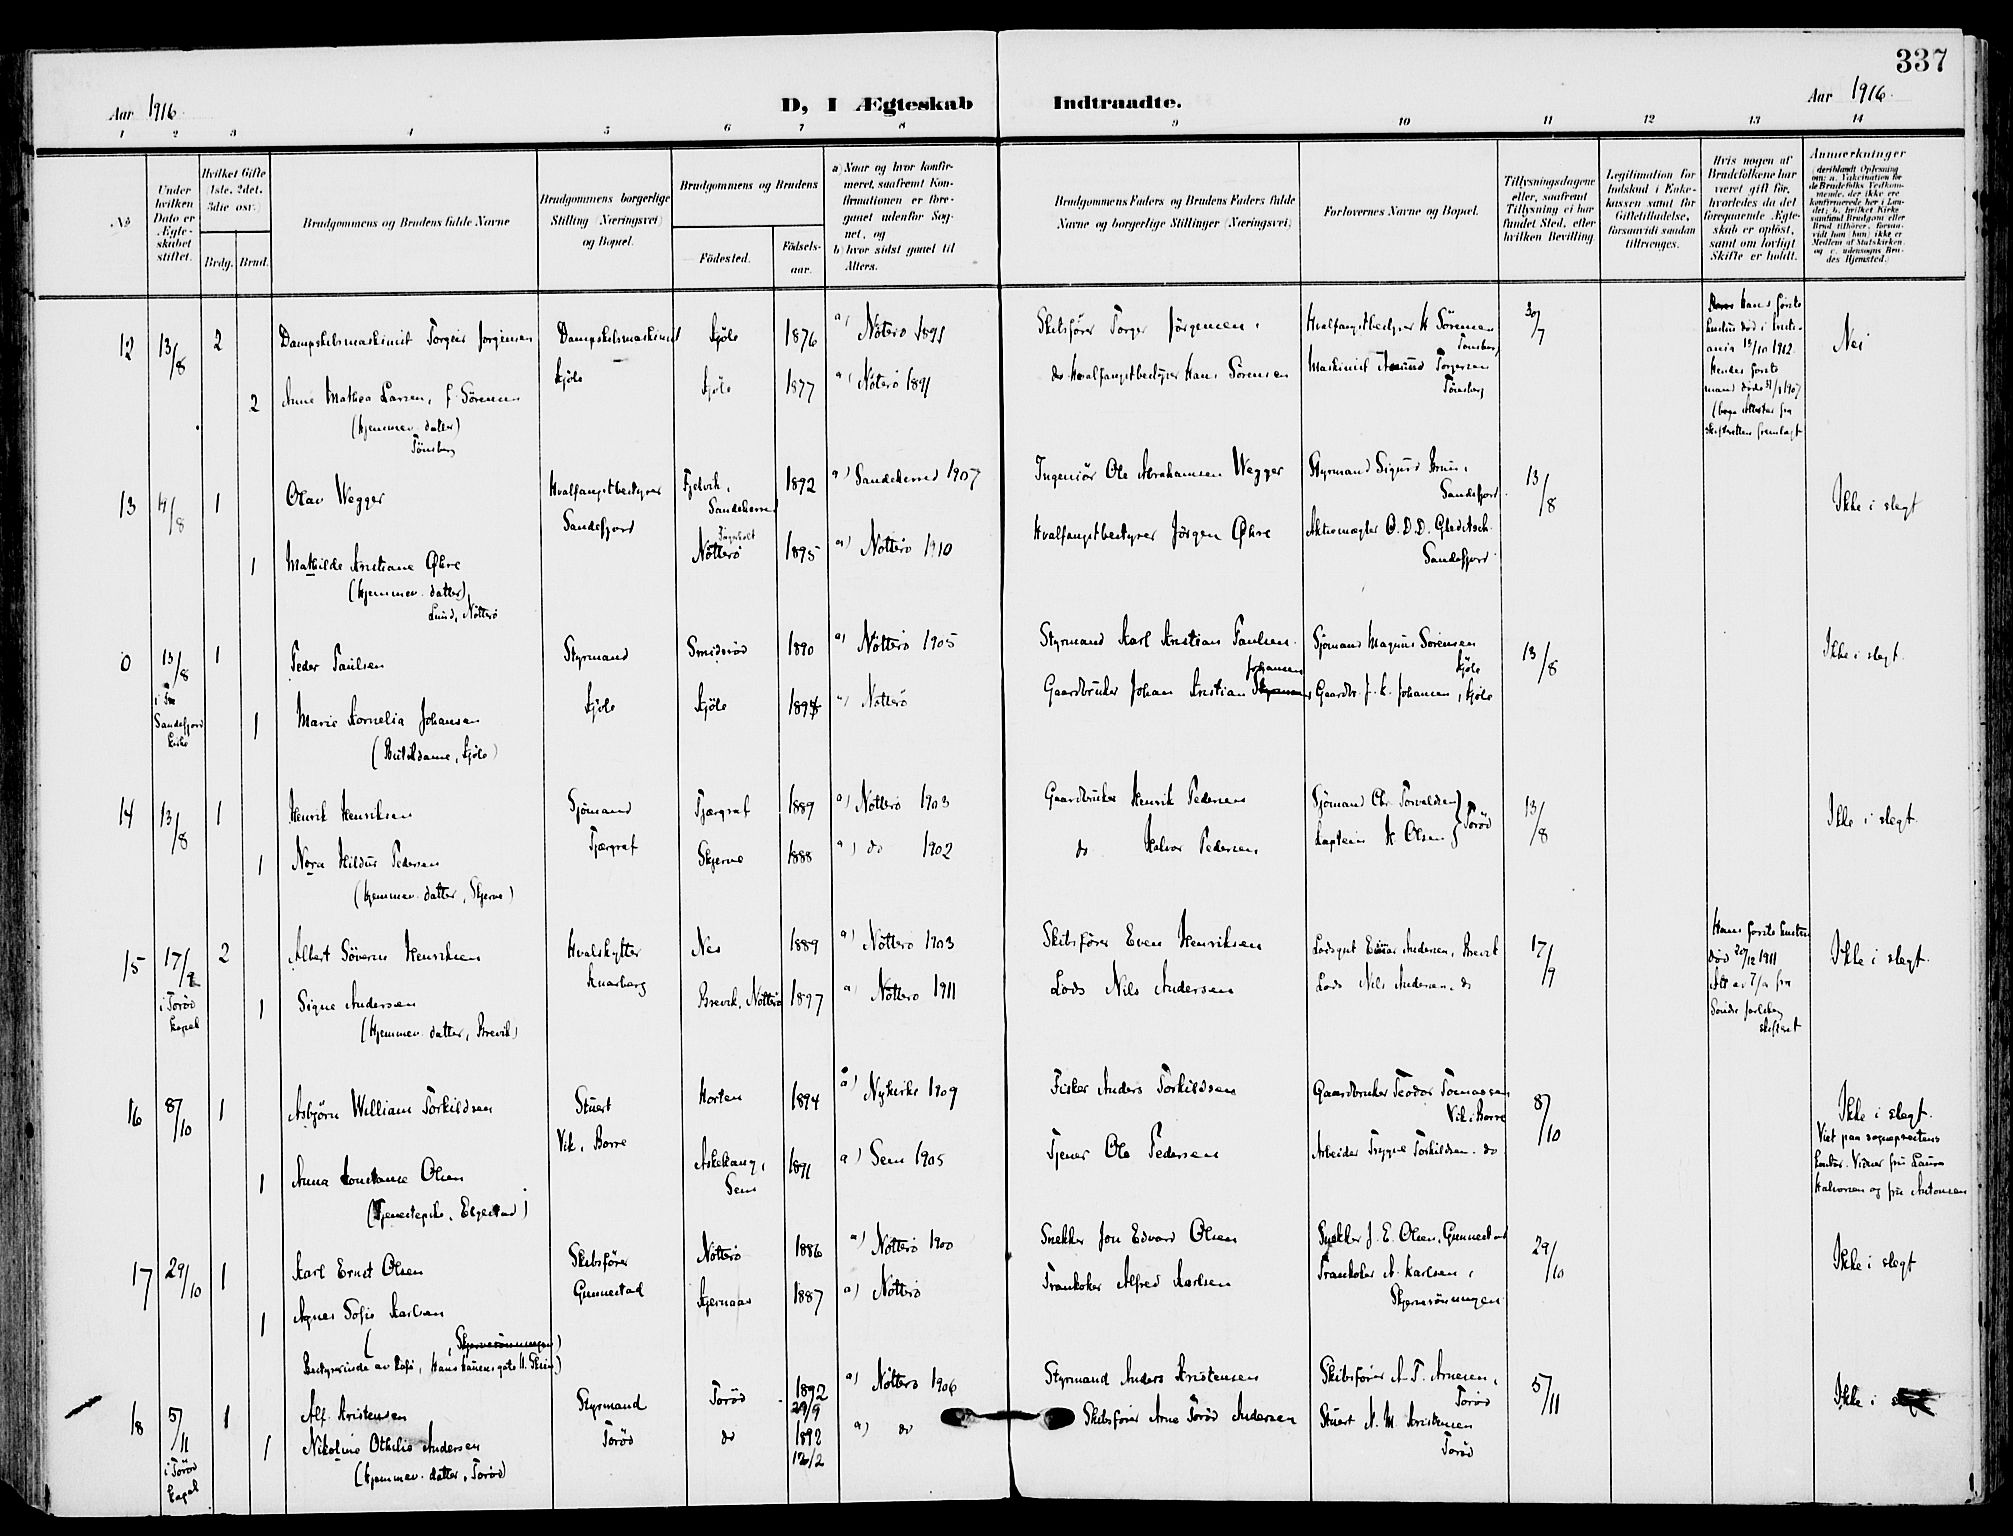 337
Aar 1916.
D, I Ægteskab Indtraadte.
Aar 1916.
1 2 3 4 5 6 7 8 9 10 11 12 13 14
No
Under hvilken Dato er Ægteskabet stiftet.
Hvilket Gifte 1ste, 2det, 3die osv.)
Brdg. Brud.
Brudgommens og Brudens fulde Navne
Brudgommens borgerlige Stilling (Næringsvei) og Bopæl.
Brudgommens og Brudens
Fødested.
Fødselsaar.
a) Naar og hvor konfirmeret, saafremt Konfirmationen er foregaaet udenfor Sognet, og
b) hvor sidst gaaet til Alters.
Brudgommens Faders og Brudens Faders fulde Navne og borgerlige Stillinger (Næringsvei)
Forlovernes Navne og Bopæl.
Tillysningsdagene eller, saafremt Tillysning ei har fundet Sted, efter hvilken Bevilling.
Legitimation for Indskud i Enkekassen samt for Giftetilladelse, forsaavidt saadan tiltrænges.
Hvis nogen af Brudefolkene har været gift før, hvorledes da det foregaaende Ægteskab er opløst, samt om lovligt Skifte er holdt.
Anmerkninger
12 13/8 2 Dampskibsmaskinist Torger Jørgensen Dampskibsmaskinist Kjøle 1876 a) Nøtterø 1891 Skibsfører Torger Jørgensen. Hvalfangstbestyrer H Sørensen Tønsberg 30/7 Nei
Kjøle
2 Anne Mathea Larsen, f. Sørensen Kjøle 1877 a) Nøtterø 1891 do Hvalfangstbestyrer Hans Sørensen Maskinist Torgersen Tønsberg
(hjemmev. datter)
Tønsberg
Hans første hustru død i 1912.
Hendes første mand døde 1907
13 4/8 1 Olav Wegger Hvalfangstbestyrer Sandefjord Fjelvik, Sandeherred 1892 a) Sandeherred 1907 Ingeniør Ole Abrahamsen Wegger Styrmand Sigurd Bruun, Sandefjord. 13/8 Ikke i slegt
1 Mathilde Kristiane Øhre Nøtterø 1895 a) Nøtterø 1910 Hvalfangstbestyrer Jørgen Øhre Aktiemægler O. D. D. Gleditsch. Sandefjord
(hjemmev. datter),
Lund, Nøtterø
0 13/8 1 Peder Paulsen Styrmand Smidsrød 1890 a) Nøtterø 1905 Styrmand Karl Kristian Paulsen. Sjømand Magnus Sørensen Kjøle 13/8 Ikke i slegt.
i Sandefjord kirke
Kjøle
1 Marie Kornelia Johansen Kjøle a) Nøtterø Gaardbruker Johan Kristian Johansen Gaardbr. J. K. Johansen, Kjøle
(Butikdame, Kjøle)
14 13/8 1 Henrik Henriksen Sjømand Tjærgraf Tjærgraf 1889 a) Nøtterø 1903 Gaardbruker Henrik Pedersen Sjømand Chr. Torvaldsen 13/8 Ikke i slegt.
1 Nora Hildur Pedersen Skjerve 1888 a) do 1902 do Halvor Pedersen. Kaptein H Olsen } Torød
(hjemmev. datter, Skjerve)
15 17/9 2 Albert Søverin Henriksen Hvalskytter Knarberg Nes 1889 a) Nøtterø 1903 Skibsfører Even Henriksen Lodsgut Einar Andersen, Brevik 17/9 Ikke i slegt.
i Torød kapel
1 Signe Andersen Brevik, Nøtterø 1897 a) Nøtterø 1911 Lods Nils Andersen Lods Nils Andersen. do
(hjemmev. datter, Brevik)
Hans første hustru død 20/12 1911
16 8/10 1 Asbjørn William Torkildsen Stuert Vik, Borre Horten 1894 a) Nykirke 1909 Fisker Anders Torkildsen Gaardbruker Teodor Tomassen Vik i Borre 8/10 Ikke i slegt.
1 Anna Konstanse Olsen Askehaug, Sem 1891 a) Sem 1905 Tjener Ole Pedersen Arbeider Trygve Torkildsen. do
(Tjenestepike, Elgestad)
Viet paa sogneprestens kontor. Vidner fru Laura Halvorsen og fru Antonsen
17 29/10 1 Karl Ernst Olsen Skibsfører Gunnestad Nøtterø 1886 a) Nøtterø 1900 Snekker Jon Edvard Olsen Snekker J. E. Olsen, Gunnestad 29/10 Ikke i slegt
1 Agnes Sofie Karlsen Kjernaas 1887 a) Nøtterø Trankoker Alfred Karlsen Trankoker A. Karlsen,
Bestyrerinde av kafe, gate 11. Skien)
18 5/11 1 Alf. Kristensen Styrmand Torød Torød 1892 29/9 a) Nøtterø 1906 Styrmand Anders Kristensen Skibsfører A. T. Arnesen, Torød 5/11 Ikke i slegt
i Torød kapel
1 Nikoline Othilie Andersen do 1892 12/2 a) do Skibsfører Arne Torød Andersen Stuert A. M. Kristensen Torød
(hjemmev. datter, Torød)